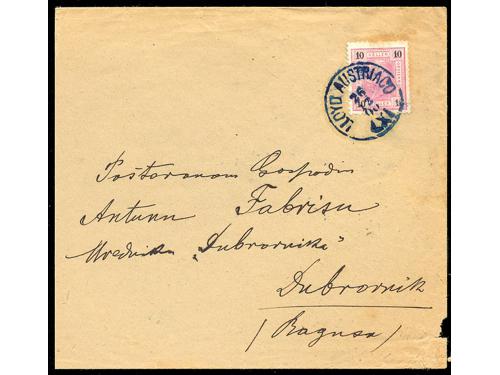 10 HELLER 10
LLOYD AUSTRIACO
LXI
Poštovanom Gospodin
Antunu Fabrisu
Uredniku „Dubrovnika“
Dubrovnik
(Ragusa)